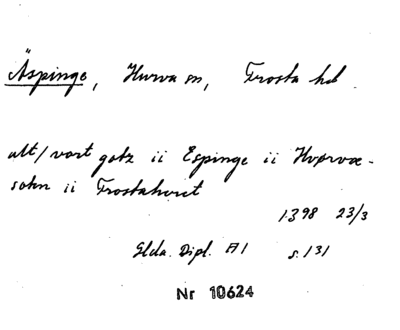 Äspinge, Hurva sn, Frosta hd.
alt/vort gotz ii Espinge ii Hvprvæ-
sohn ii Frostahæret
1398 23/3
Glda. Dipl. A1 s. 131
Nr 10624